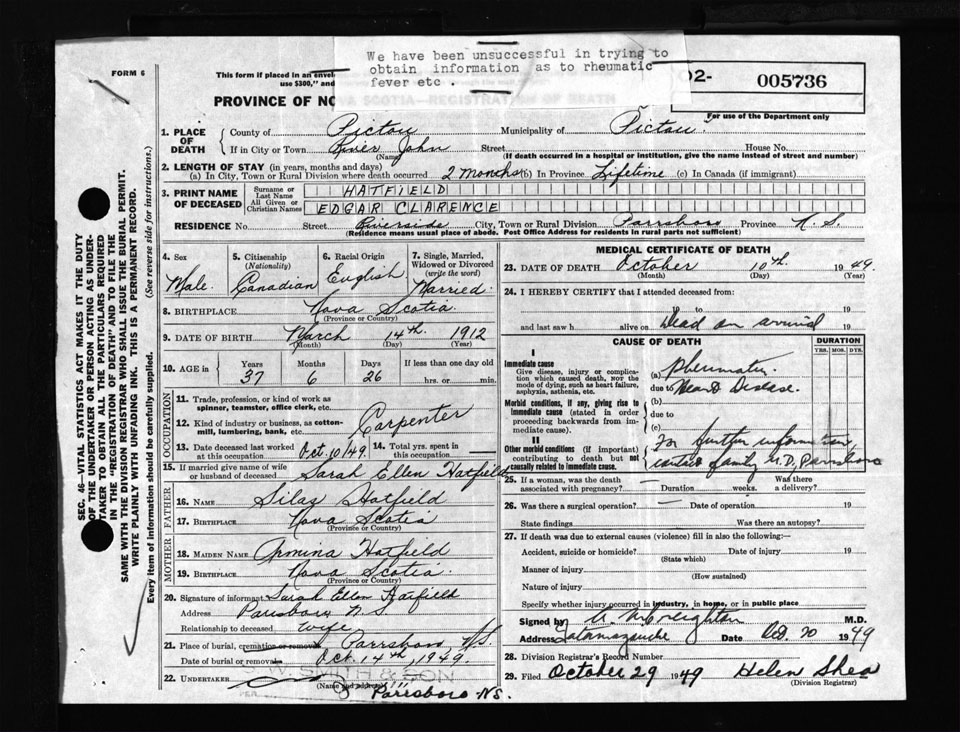 We have been unsuccessful in trying to
obtain information as to rheumatic
fever etc .
02-
005736
For use of the Department only
FORM 6
This form if placed in an envel
use $300," and
PROVINCE OF NO
VA SCOTIA—REGISTRATION OF DEATH
1. PLACE OF DEATH
County of Pictou Municipality of Pictou
If in City or Town River John Street House No.
(Name) (If death occurred in a hospital or institution, give the name instead of street and number)
2. LENGTH OF STAY (in years, months and days)
(a) In City, Town or Rural Division where death occurred 2 months (b) In Province Lifetime (c) In Canada (if immigrant)
3. PRINT NAME OF DECEASED
Surname or Last Name HATFIELD
All Given or Christian Names EDGAR CLARENCE
RESIDENCE No. Street Riverside City, Town or Rural Division Parrsboro Province N. S.
(Residence means usual place of abode. Post Office Address for residents in rural parts not sufficient)
4. Sex Male
5. Citizenship (Nationality) Canadian
6. Racial Origin English
7. Single, Married, Widowed or Divorced (write the word) Married
8. BIRTHPLACE Nova Scotia
(Province or Country)
9. DATE OF BIRTH March 14th 1912
(Month) (Day) (Year)
10. AGE in Years 37 Months 6 Days 26 If less than one day old
hrs. or min.
OCCUPATION
11. Trade, profession, or kind of work as spinner, teamster, office clerk, etc.
12. Kind of industry or business, as cotton-mill, lumbering, bank, etc. Carpenter
13. Date deceased last worked at this occupation Oct. 10/49
14. Total yrs. spent in this occupation
15. If married give name of wife or husband of deceased Sarah Ellen Hatfield
FATHER
16. NAME Silas Hatfield
17. BIRTHPLACE Nova Scotia
(Province or Country)
MOTHER
18. MAIDEN NAME Armina Hatfield
19. BIRTHPLACE Nova Scotia
(Province or Country)
20. Signature of informant Sarah Ellen Hatfield
Address Parrsboro N. S.
Relationship to deceased wife
21. Place of burial, cremation or removal Parrsboro N.S.
Date of burial or removal Oct. 14th, 1949.
22. UNDERTAKER
SMITH & SON
(Name and address)
Parrsboro N.S.
MEDICAL CERTIFICATE OF DEATH
23. DATE OF DEATH October 10th 1949.
(Month) (Day) (Year)
24. I HEREBY CERTIFY that I attended deceased from:
19 to 19
and last saw h alive on Dead on arrival 19
CAUSE OF DEATH
DURATION
YRS. MOS. DYS.
I
Immediate cause
Give disease, injury or complication which caused death, NOT the mode of dying, such as heart failure, asphyxia, asthenia, etc.
(a) Rheumatic
due to Heart Disease.
Morbid conditions, if any, giving rise to immediate cause (stated in order proceeding backwards from immediate cause).
(b)
due to
(c)
II
Other morbid conditions (if important) contributing to death but not causally related to immediate cause.
For further information
family M.D, Parrsboro
25. If a woman, was the death associated with pregnancy? Duration weeks. Was there a delivery?
26. Was there a surgical operation? Date of operation 19
State findings Was there an autopsy?
27. If death was due to external causes (violence) fill in also the following:—
Accident, suicide or homicide? Date of injury 19
(State which)
Manner of injury
(How sustained)
Nature of injury
Specify whether injury occurred in industry, in home, or in public place
Signed by A. M. Creighton M.D.
Address Tatamagouche Date Oct. 20 1949
28. Division Registrar's Record Number
29. Filed October 29 1949 Helen Shea
(Division Registrar)
SEC. 46—VITAL STATISTICS ACT MAKES IT THE DUTY
OF THE UNDERTAKER OR PERSON ACTING AS UNDER-
TAKER TO OBTAIN ALL THE PARTICULARS REQUIRED
IN THE "REGISTRATION OF DEATH" AND TO FILE THE
SAME WITH THE DIVISION REGISTRAR WHO SHALL ISSUE THE BURIAL PERMIT.
WRITE PLAINLY WITH UNFADING INK. THIS IS A PERMANENT RECORD.
Every item of information should be carefully supplied. (See reverse side for instructions.)